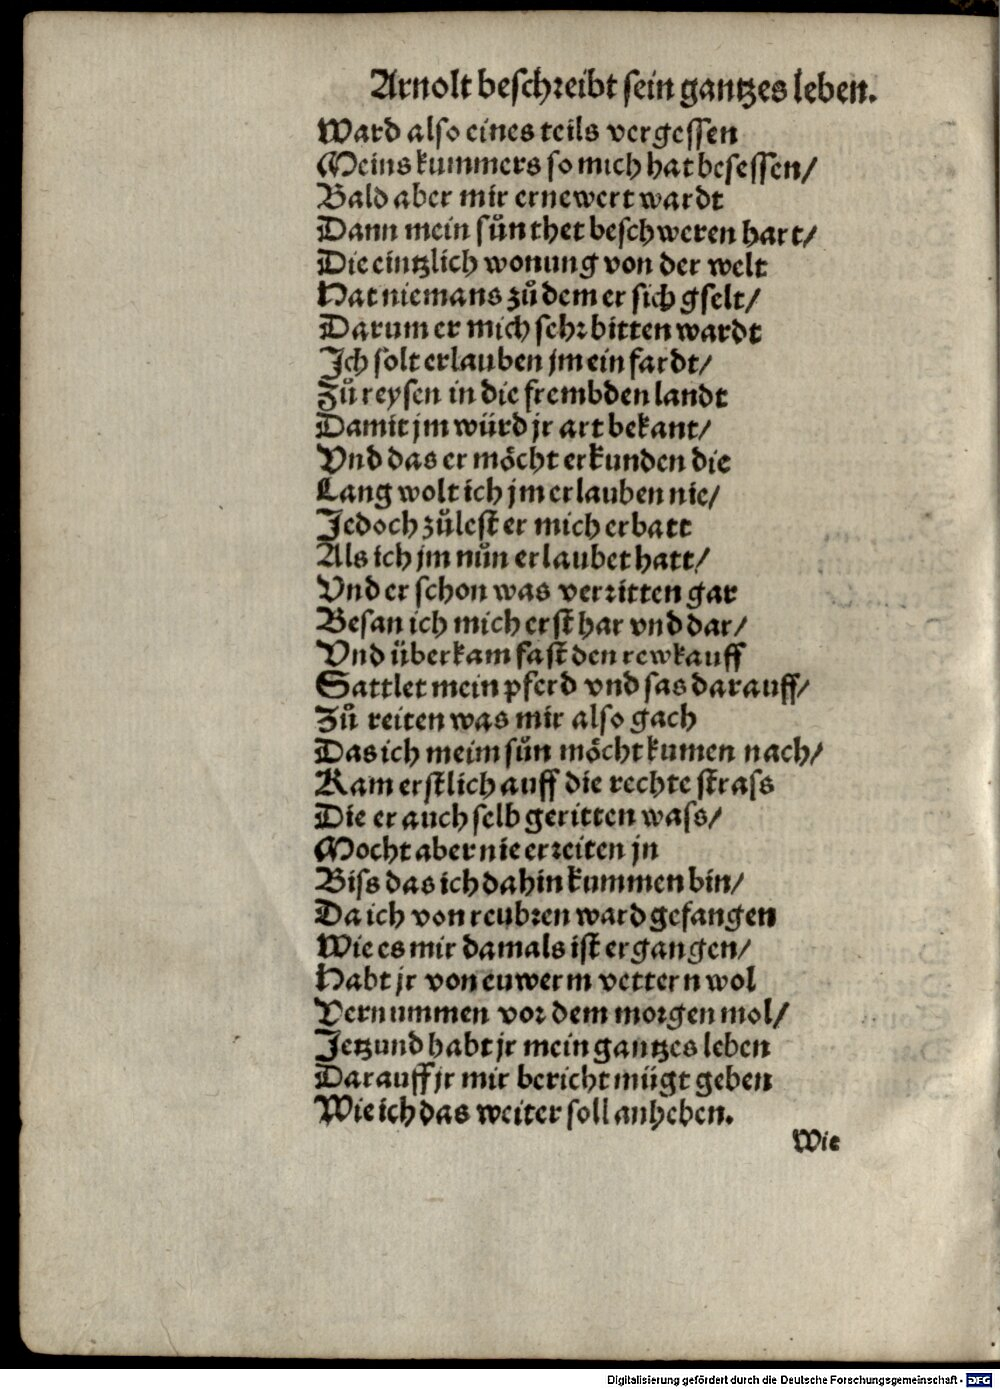 Arnolt beschreibt sein gantzes leben.
Ward also eines teils vergessen
Meins kummers so mich hat besessen/
Bald aber mir ernewert wardt
Dann mein sůn thet beschweren hart/
Die eintzlich wonung von der welt
Hat niemans zů dem er sich gselt/
Darum er mich sehr bitten wardt
Ich solt erlauben jm ein fardt/
Zů reysen in die frembden landt
Damit jm würd jr art bekant/
Vnd das er möcht erkunden die
Lang wolt ich jm erlauben nie/
Jedoch zůlest er mich erbatt
Als ich jm nůn erlaubet hatt/
Vnd er schon was verritten gar
Besan ich mich erst har vnd dar/
Vnd überkam fast den rewkauff
Sattlet mein pferd vnd sas darauff/
Zů reiten was mir also gach
Das ich meim sůn möcht kumen nach/
Kam erstlich auff die rechte strass
Die er auch selb geritten wass/
Mocht aber nie erreiten jn
Biss das ich dahin kummen bin/
Da ich von reubren ward gefangen
Wie es mir damals ist ergangen/
Habt jr von euwerm vettern wol
Vernummen vor dem morgen mol/
Jetzund habt jr mein gantzes leben
Darauff jr mir bericht mügt geben
Wie ich das weiter soll anheben.
Wie
Digitalisierung gefördert durch die Deutsche Forschungsgemeinschaft - DFG